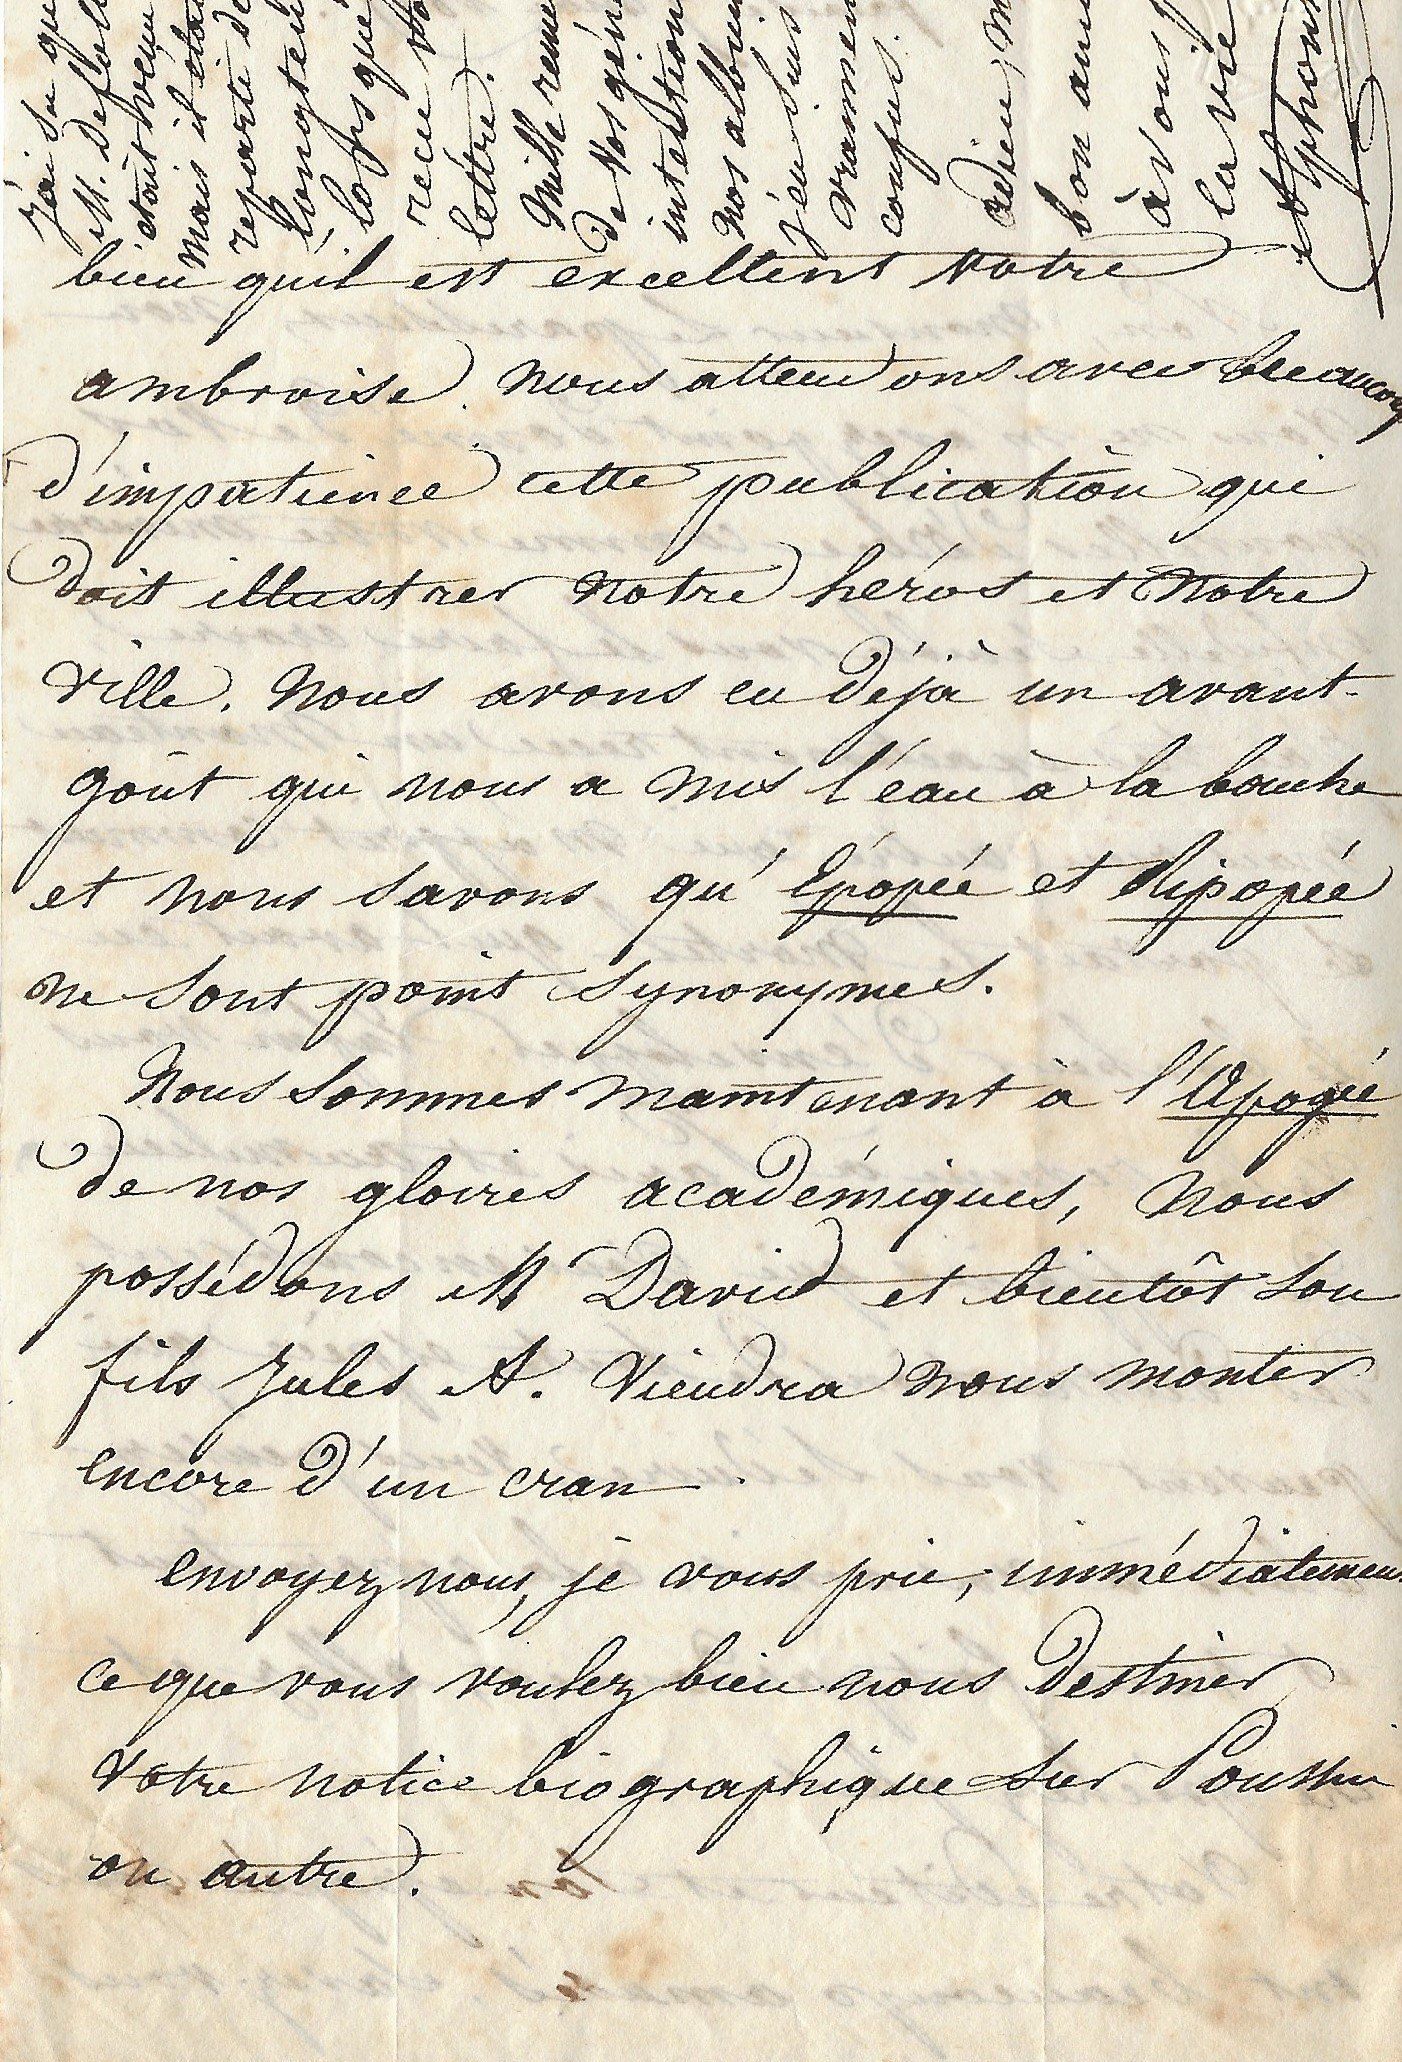 bien qu'il est excellent votre
ambroise. nous attendons avec beaucoup
d'impatience cette publication qui
doit illustrer notre héros et notre
ville. Nous avons eu déjà un avant-
goût qui nous a mis l'eau à la bouche
et nous savons qu'Epopée et Ripopée
ne sont point synonymes.
Nous sommes maintenant à l'Apogée
de nos gloires académiques, nous
possédons Mr David et bientôt son
fils Jules A. viendra nous monter
encore d'un cran.
envoyez nous, je vous prie, immédiatement
ce que vous voulez bien nous destiner,
votre notice biographique sur Poussin
ou autre.
J'ai su que
M.
était venu
mais il était
reparti de
longtems
lorsque
recu vo
lettre.
Mille reme
de vos géné
intentions
nos album
j'en suis
vraimen
confus.
adieu, m
bon ami
à vous p
la vie
Alphons